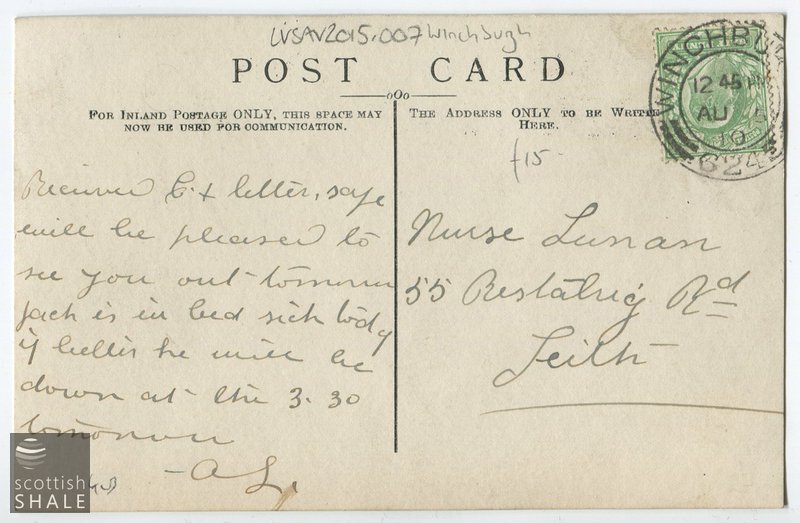 LVSAV2015.007 Winchburgh
POST CARD
FOR INLAND POSTAGE ONLY, THIS SPACE MAY
NOW BE USED FOR COMMUNICATION.
THE ADDRESS ONLY TO BE WRITTE
HERE.
WINCHBU
12 45 PM
AU
10
624
£15-
Received & letter, safe
will be pleased to
see you out tomorrow
Jack is in bed sick today
if better he will be
down at the 3.30
tomorrow
- A L.
Nurse Lunan
55 Restalrig Rd
Leith
scottish
SHALE